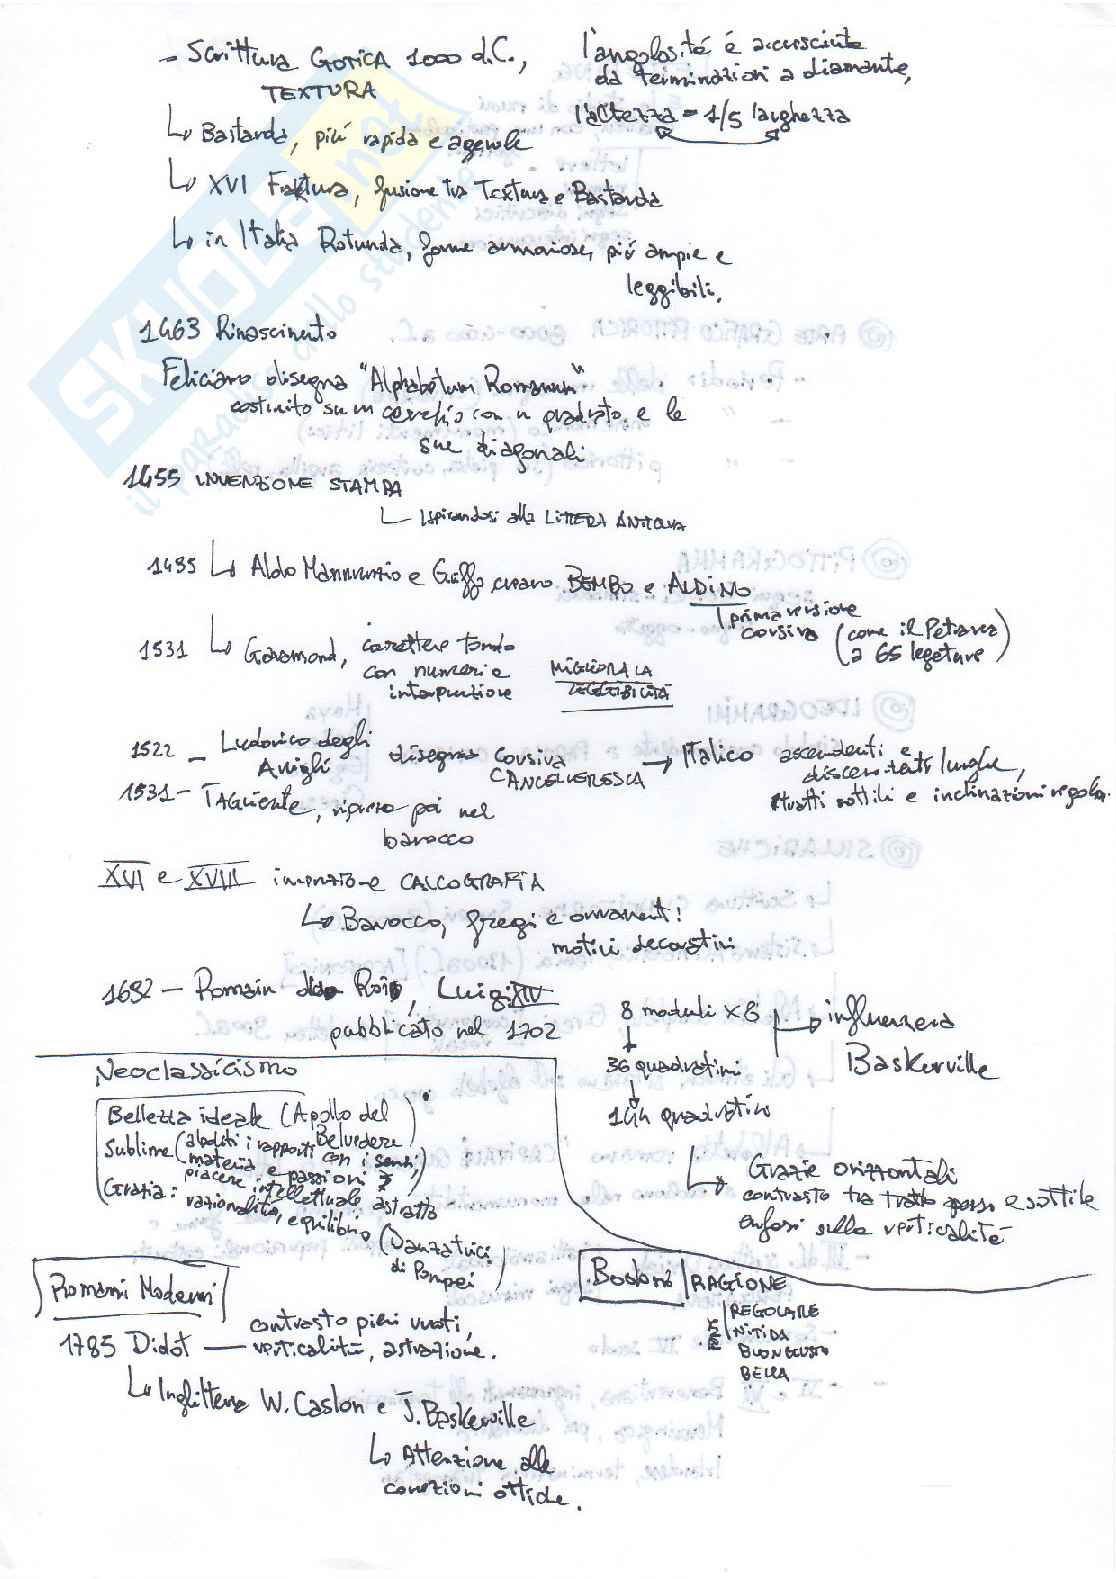 - Scrittura GOTICA 1000 d.C.,
TEXTURA
l'angolosità é accresciuta
da terminazioni a diamante,
l'altezza = 1/5 larghezza
↳ Bastarda, più rapida e agevole
↳ XVI Fraktura, fusione tra Textura e Bastarda
↳ in Italia Rotunda, forme armoniose, più ampie e
leggibili.
1463 Rinascimento
Feliciano disegna "Alphabetum Romanum"
costruito su un cerchio con un quadrato e le
sue diagonali
1455 INVENZIONE STAMPA
↳ Ispirandosi alla LITTERA ANTIQUA
1495 ↳ Aldo Mannunzio e Griffo creano BEMBO e ALDINO
prima versione
corsiva (come il Petrarca)
(a 65 legature)
1531 ↳ Garamond, carattere tondo
con numeri e
interpunzione
MIGLIORA LA
LEGGIBILITÀ
1522 - Ludovico degli
Arrighi disegna corsiva
CANCELLERESCA → Italico ascendenti e
discendenti lunghe,
tratti sottili e inclinazioni regolari.
1531 - TAGLIENTE, ripreso poi nel
barocco
XVI e XVIII CALCOGRAFIA
↳ Barocco, fregi e ornamenti!
motivi decorativi
1692 - Romain du Roi, Luigi XIV
pubblicato nel 1702
8 moduli x 8
36 quadratini
144 quadratini
influenzerà
Baskerville
↳ Grazie orizzontali
contrasto tra tratto grosso e sottile
enfasi sulla verticalità
Neoclassicismo
Bellezza ideale (Apollo del
Belvedere)
Sublime (aboliti i rapporti
materia con i sensi,
piacere e passioni)
Grazia: intellettuale astratto
razionalità, equilibrio (Danzatrici
di Pompei)
Romani Moderni
1785 Didot — contrasto pieni vuoti,
verticalità, astrazione.
↳ Inghilterra W. Caslon e J. Baskerville
↳ Attenzione alle
correzioni ottiche.
Bodoni RAGIONE
REGOLARE
NITIDA
BUON GUSTO
BELLA
SKUOLA.net
il paradiso dello studente